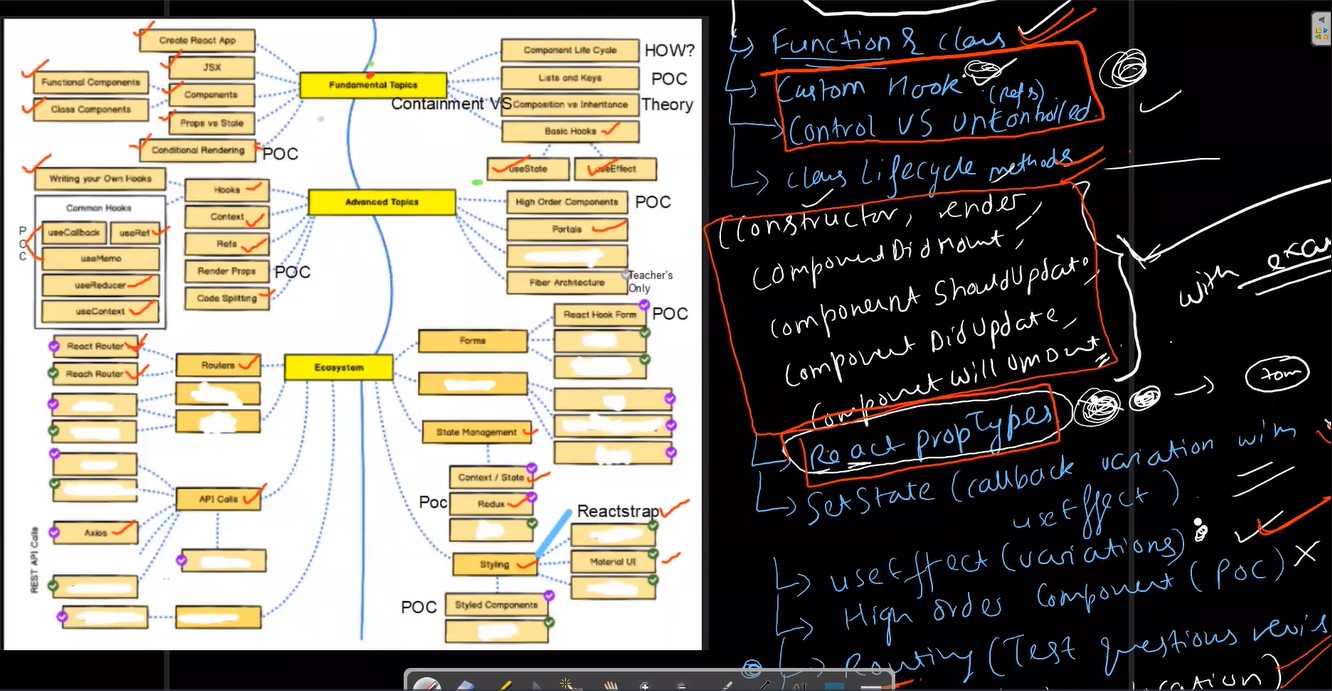 Create React App
JSX
Functional Components
Components
Class Components
Props vs State
Conditional Rendering
POC
Fundamental Topics
Component Life Cycle
HOW?
Lists and Keys
POC
Containment VS
Composition vs Inheritance
Theory
Basic Hooks
useState
useEffect
Writing your Own Hooks
Common Hooks
P
O
C
useCallback
useRef
useMemo
useReducer
useContext
Hooks
Context
Refs
Render Props
POC
Code Splitting
Advanced Topics
High Order Components
POC
Portals
Fiber Architecture
Teacher's
Only
React Router
Reach Router
Routers
Ecosystem
Forms
React Hook Form
POC
State Management
Context / State
Poc
Redux
Reactstrap
Styling
Material UI
POC
Styled Components
API Calls
Axios
REST API Calls
Function & class
Custom Hook
(refs)
Control VS UnControlled
class Lifecycle methods
(Constructor, render,
ComponentDidMount,
Component ShouldUpdate,
Component DidUpdate,
Componet Will Umount
with
React propTypes
SetState (callback variation with
useEffect)
useEffect (variations)
High order Component (POC)
Routing (Test questions